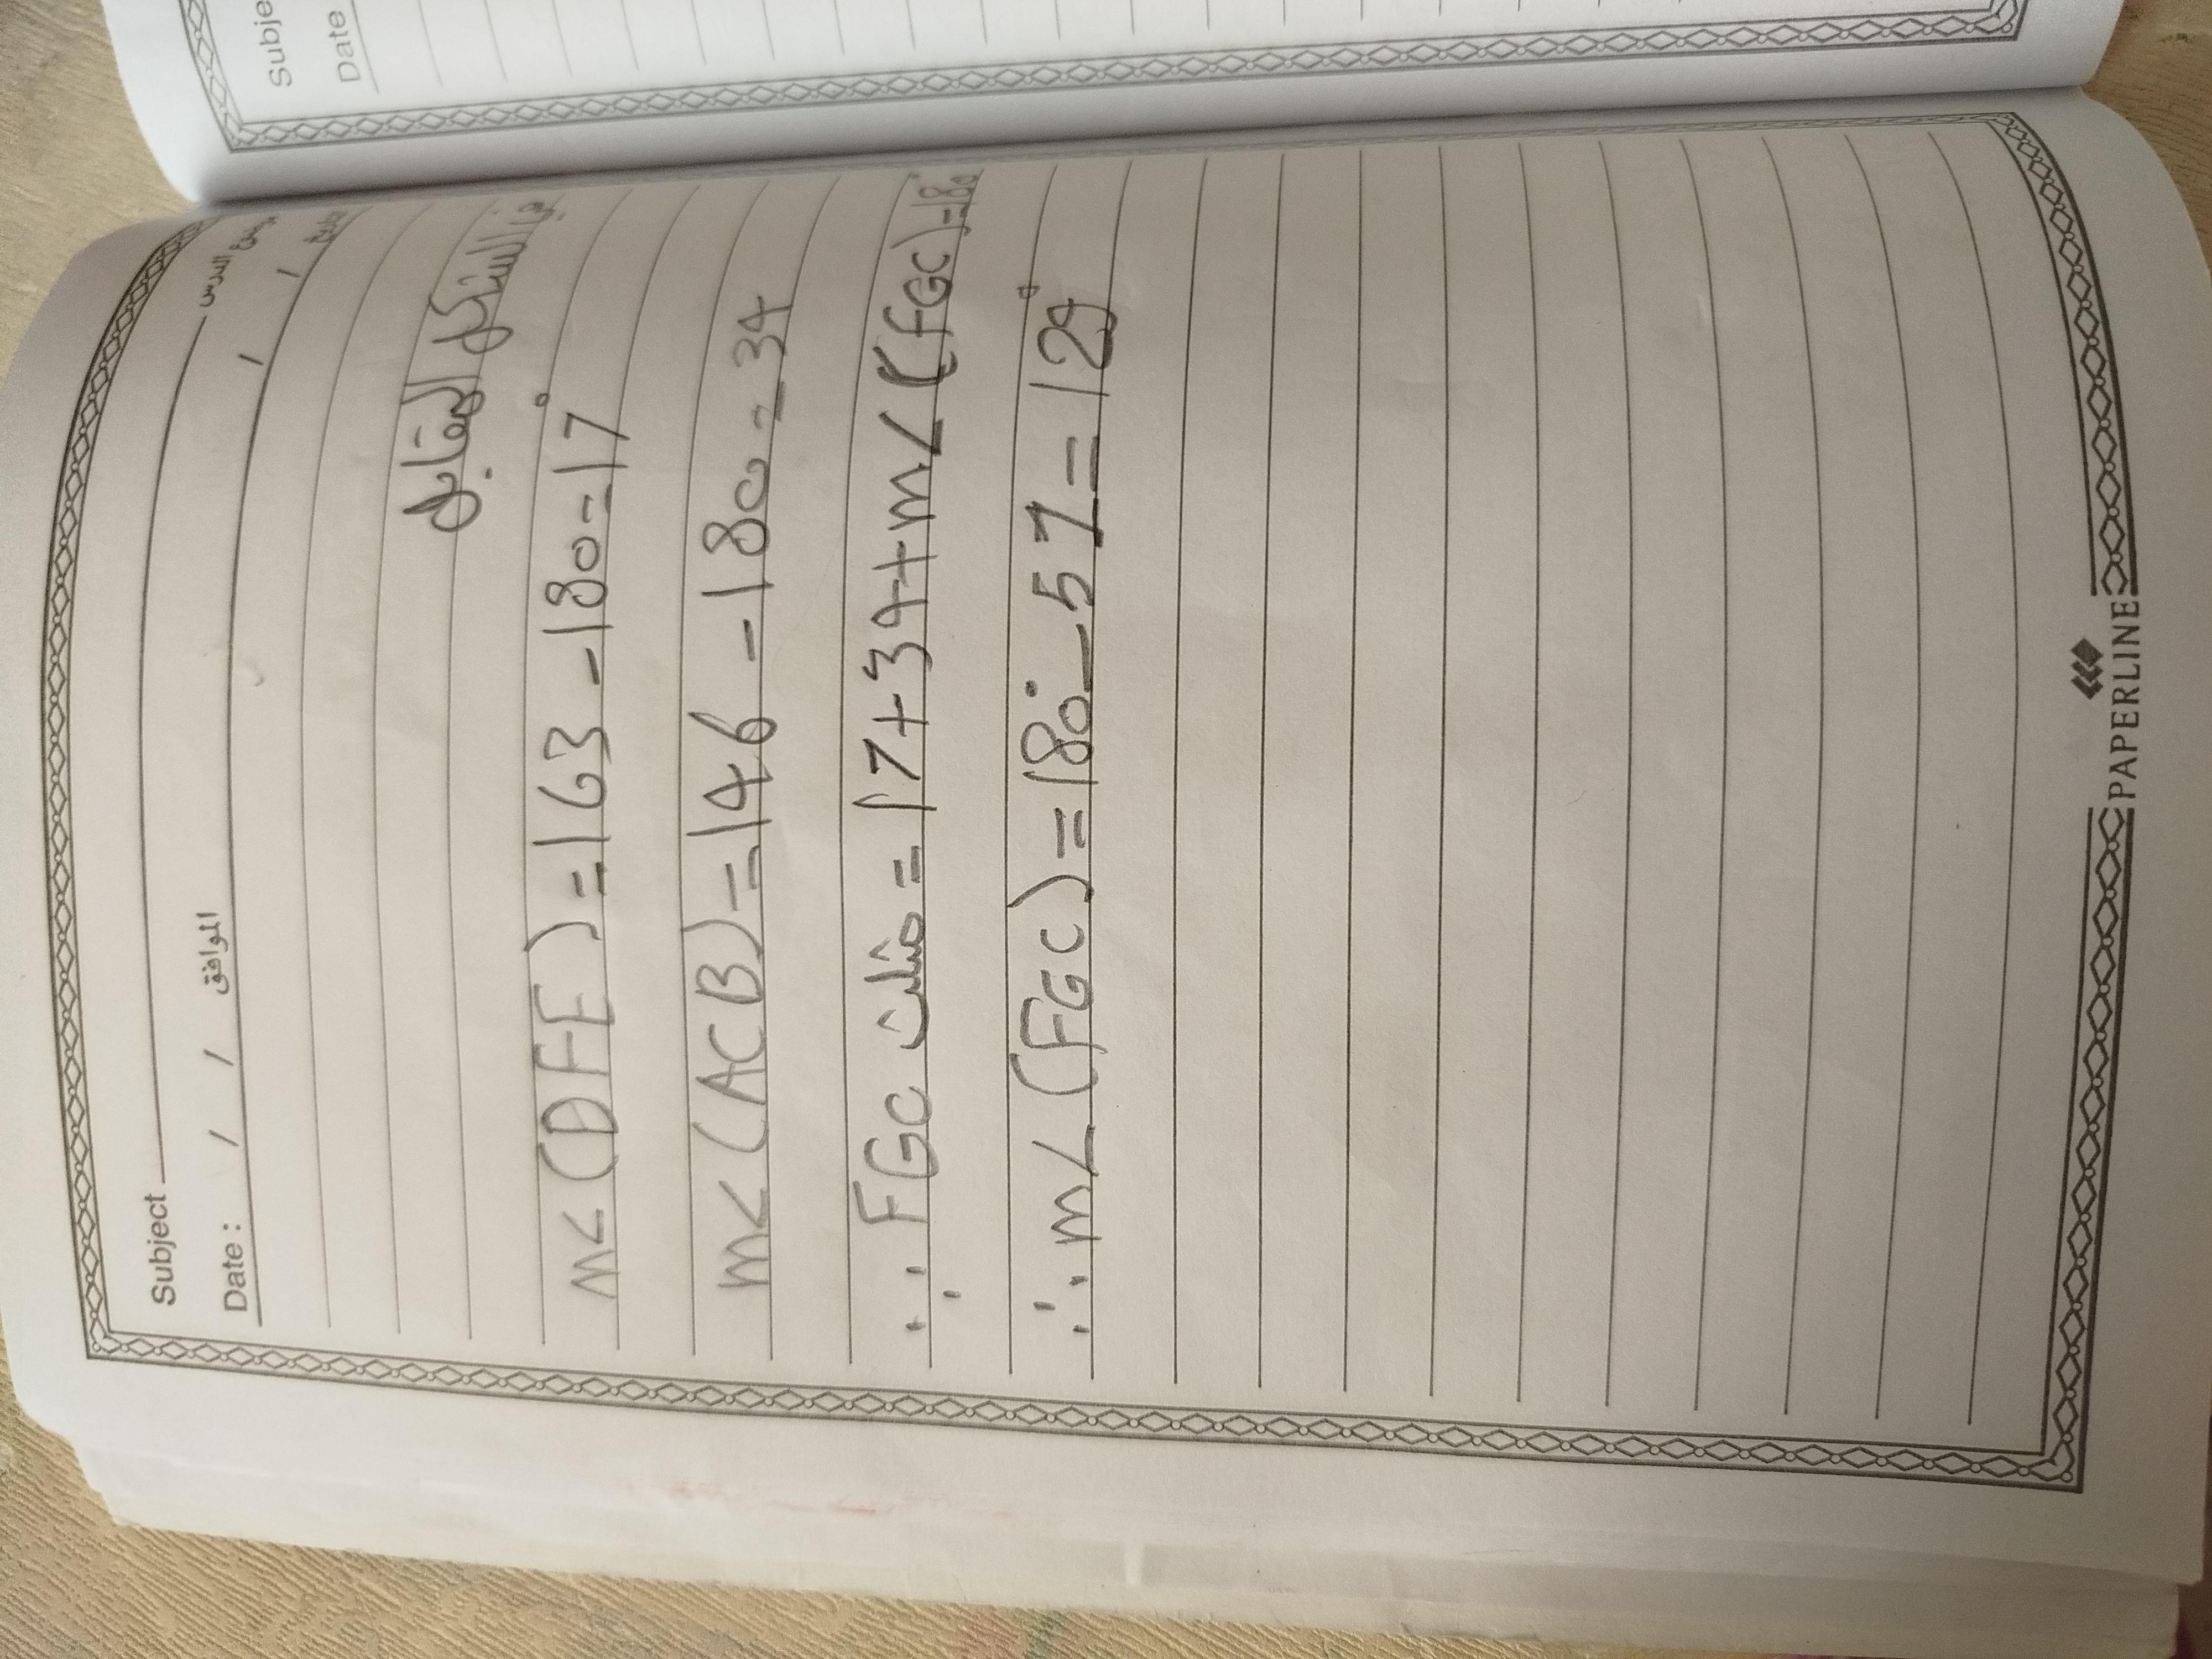 Subje
Date
Subject موضوع الدرس
Date : / / الموافق / / التاريخ
في الشكل المقابل
m< (DFE) = 163 - 180 = 17°
m< (ACB) = 146 - 180 = 34
∵ FGC مثلث = 17 + 34 + m< (FGC) = 180°
∴ m< (FGC) = 180° - 51 = 129°
PAPERLINE